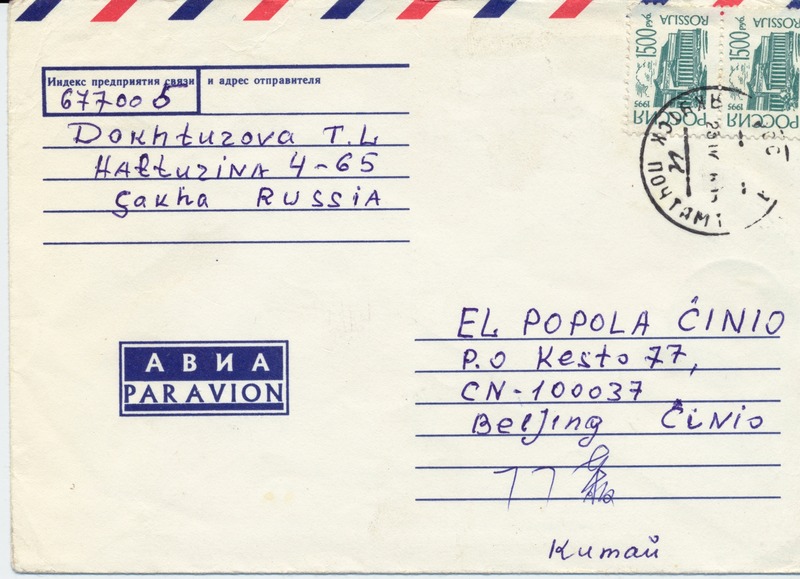 1500 руб. ROSSIJA
1995 РОССИЯ
1500 руб. ROSSIJA
1995 РОССИЯ
ПОЧТАМТ
Индекс предприятия связи и адрес отправителя
677005
Dokhturova T.L
Halturina 4-65
Sakha RUSSIA
АВИА
PAR AVION
EL POPOLA ĈINIO
P.O Kesto 77,
CN-100037
Beljing ĈINIO
77
Китай